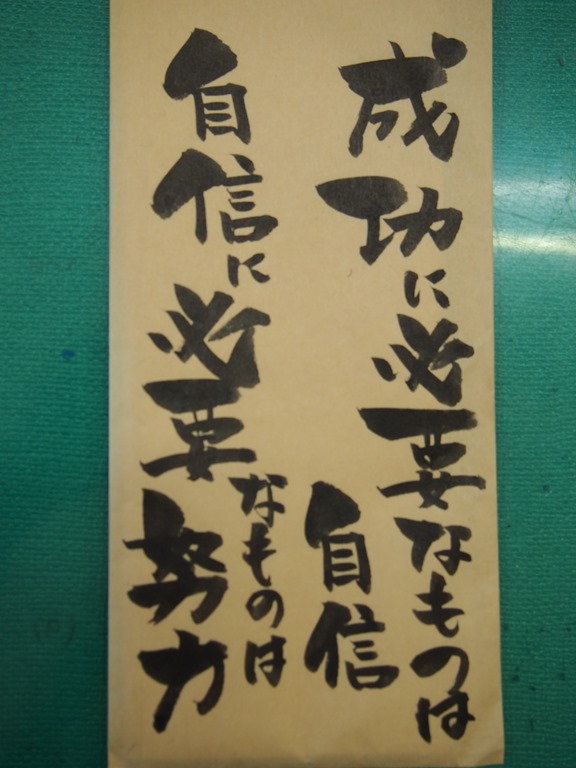 成功に必要なものは
自信
自信に必要なものは
努力